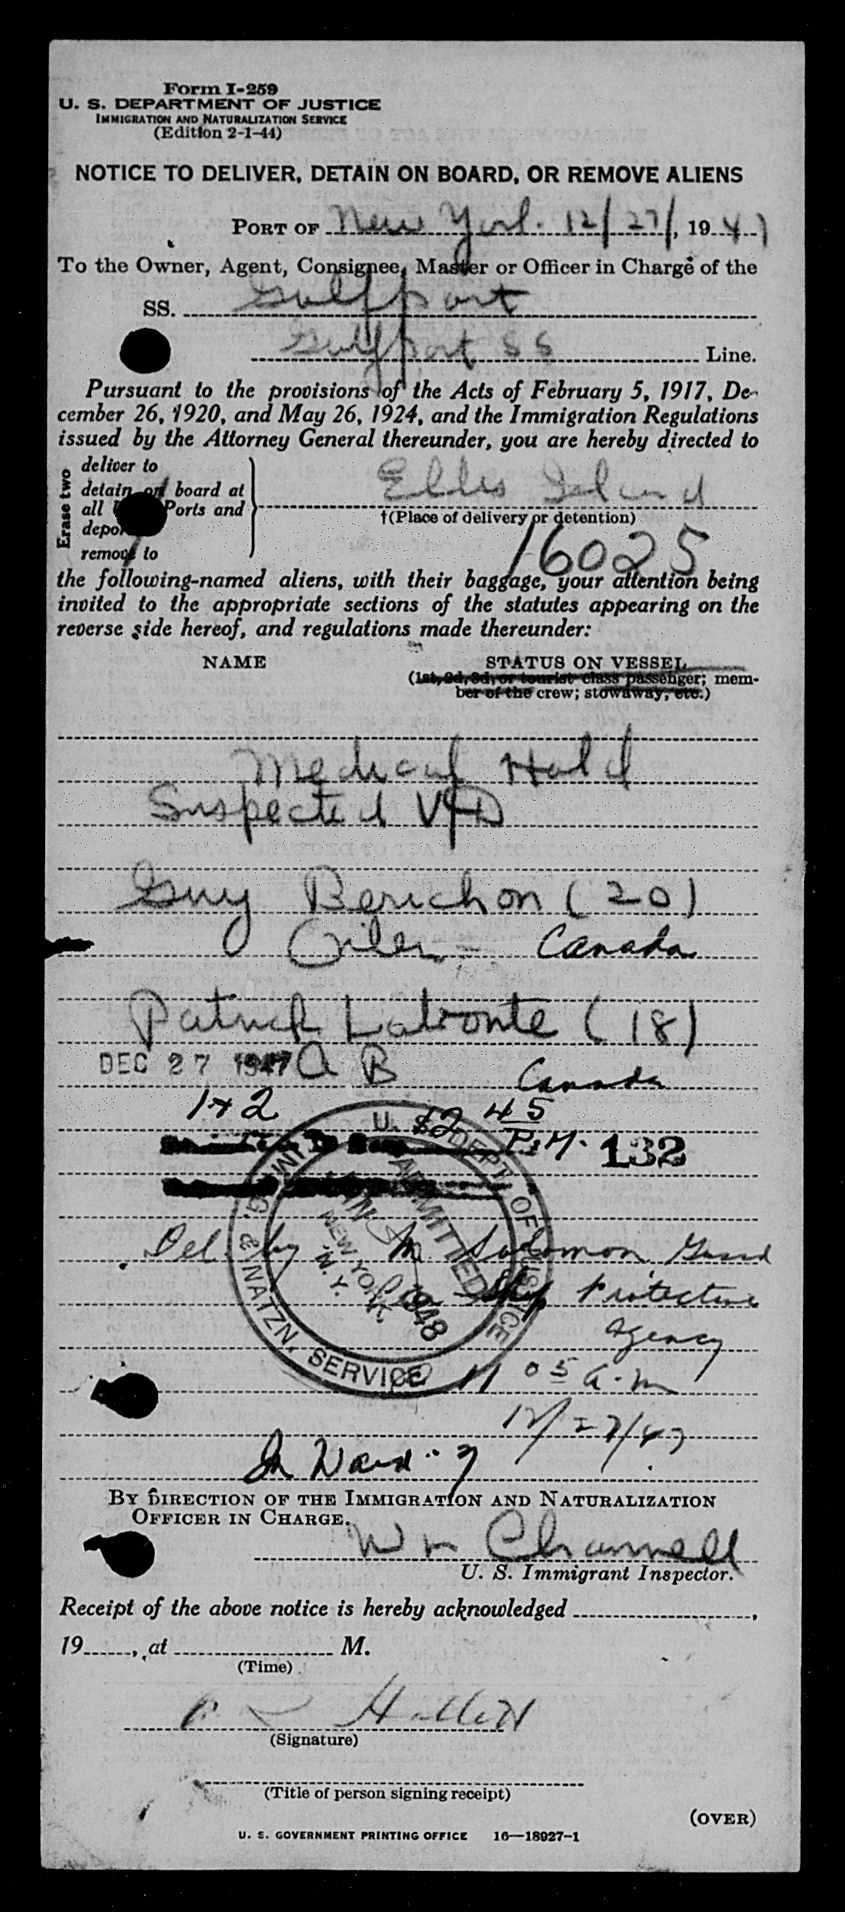 Form I-259
U. S. DEPARTMENT OF JUSTICE
IMMIGRATION AND NATURALIZATION SERVICE
(Edition 2-1-44)
NOTICE TO DELIVER, DETAIN ON BOARD, OR REMOVE ALIENS
PORT OF New York. 12/27/, 1947
To the Owner, Agent, Consignee, Master or Officer in Charge of the
SS. Gulfport
Gulfport SS Line.
Pursuant to the provisions of the Acts of February 5, 1917, De-
cember 26, 1920, and May 26, 1924, and the Immigration Regulations
issued by the Attorney General thereunder, you are hereby directed to
Erase two
deliver to
detain on board at
all Ports and
remove to
Ellis Island
†(Place of delivery or detention)
16025
the following-named aliens, with their baggage, your attention being
invited to the appropriate sections of the statutes appearing on the
reverse side hereof, and regulations made thereunder:
NAME STATUS ON VESSEL
(1st, 2d, 3d, or tourist class passenger; mem-
ber of the crew; stowaway, etc.)
Medical Hold
Suspected VD
Guy Berichon (20)
Oiler - Canada
Patrick Labonte (18)
DEC 27 1947 A B
Canada
1 + 2 $2 45
P.M. 132
U. S. DEPT. OF JUSTICE
IMMIG. & NATZN. SERVICE
ADMITTED
NEW YORK,
N. Y.
1948
Del. by M Solomon Guard
Ship Protective
Agency
11 05 a.m
12/27/47
In Ward - 7
BY DIRECTION OF THE IMMIGRATION AND NATURALIZATION
OFFICER IN CHARGE.
Wm Channell
U. S. Immigrant Inspector.
Receipt of the above notice is hereby acknowledged ,
19 , at M.
(Time)
(Signature)
(Title of person signing receipt)
(OVER)
U. S. GOVERNMENT PRINTING OFFICE 16—18927-1